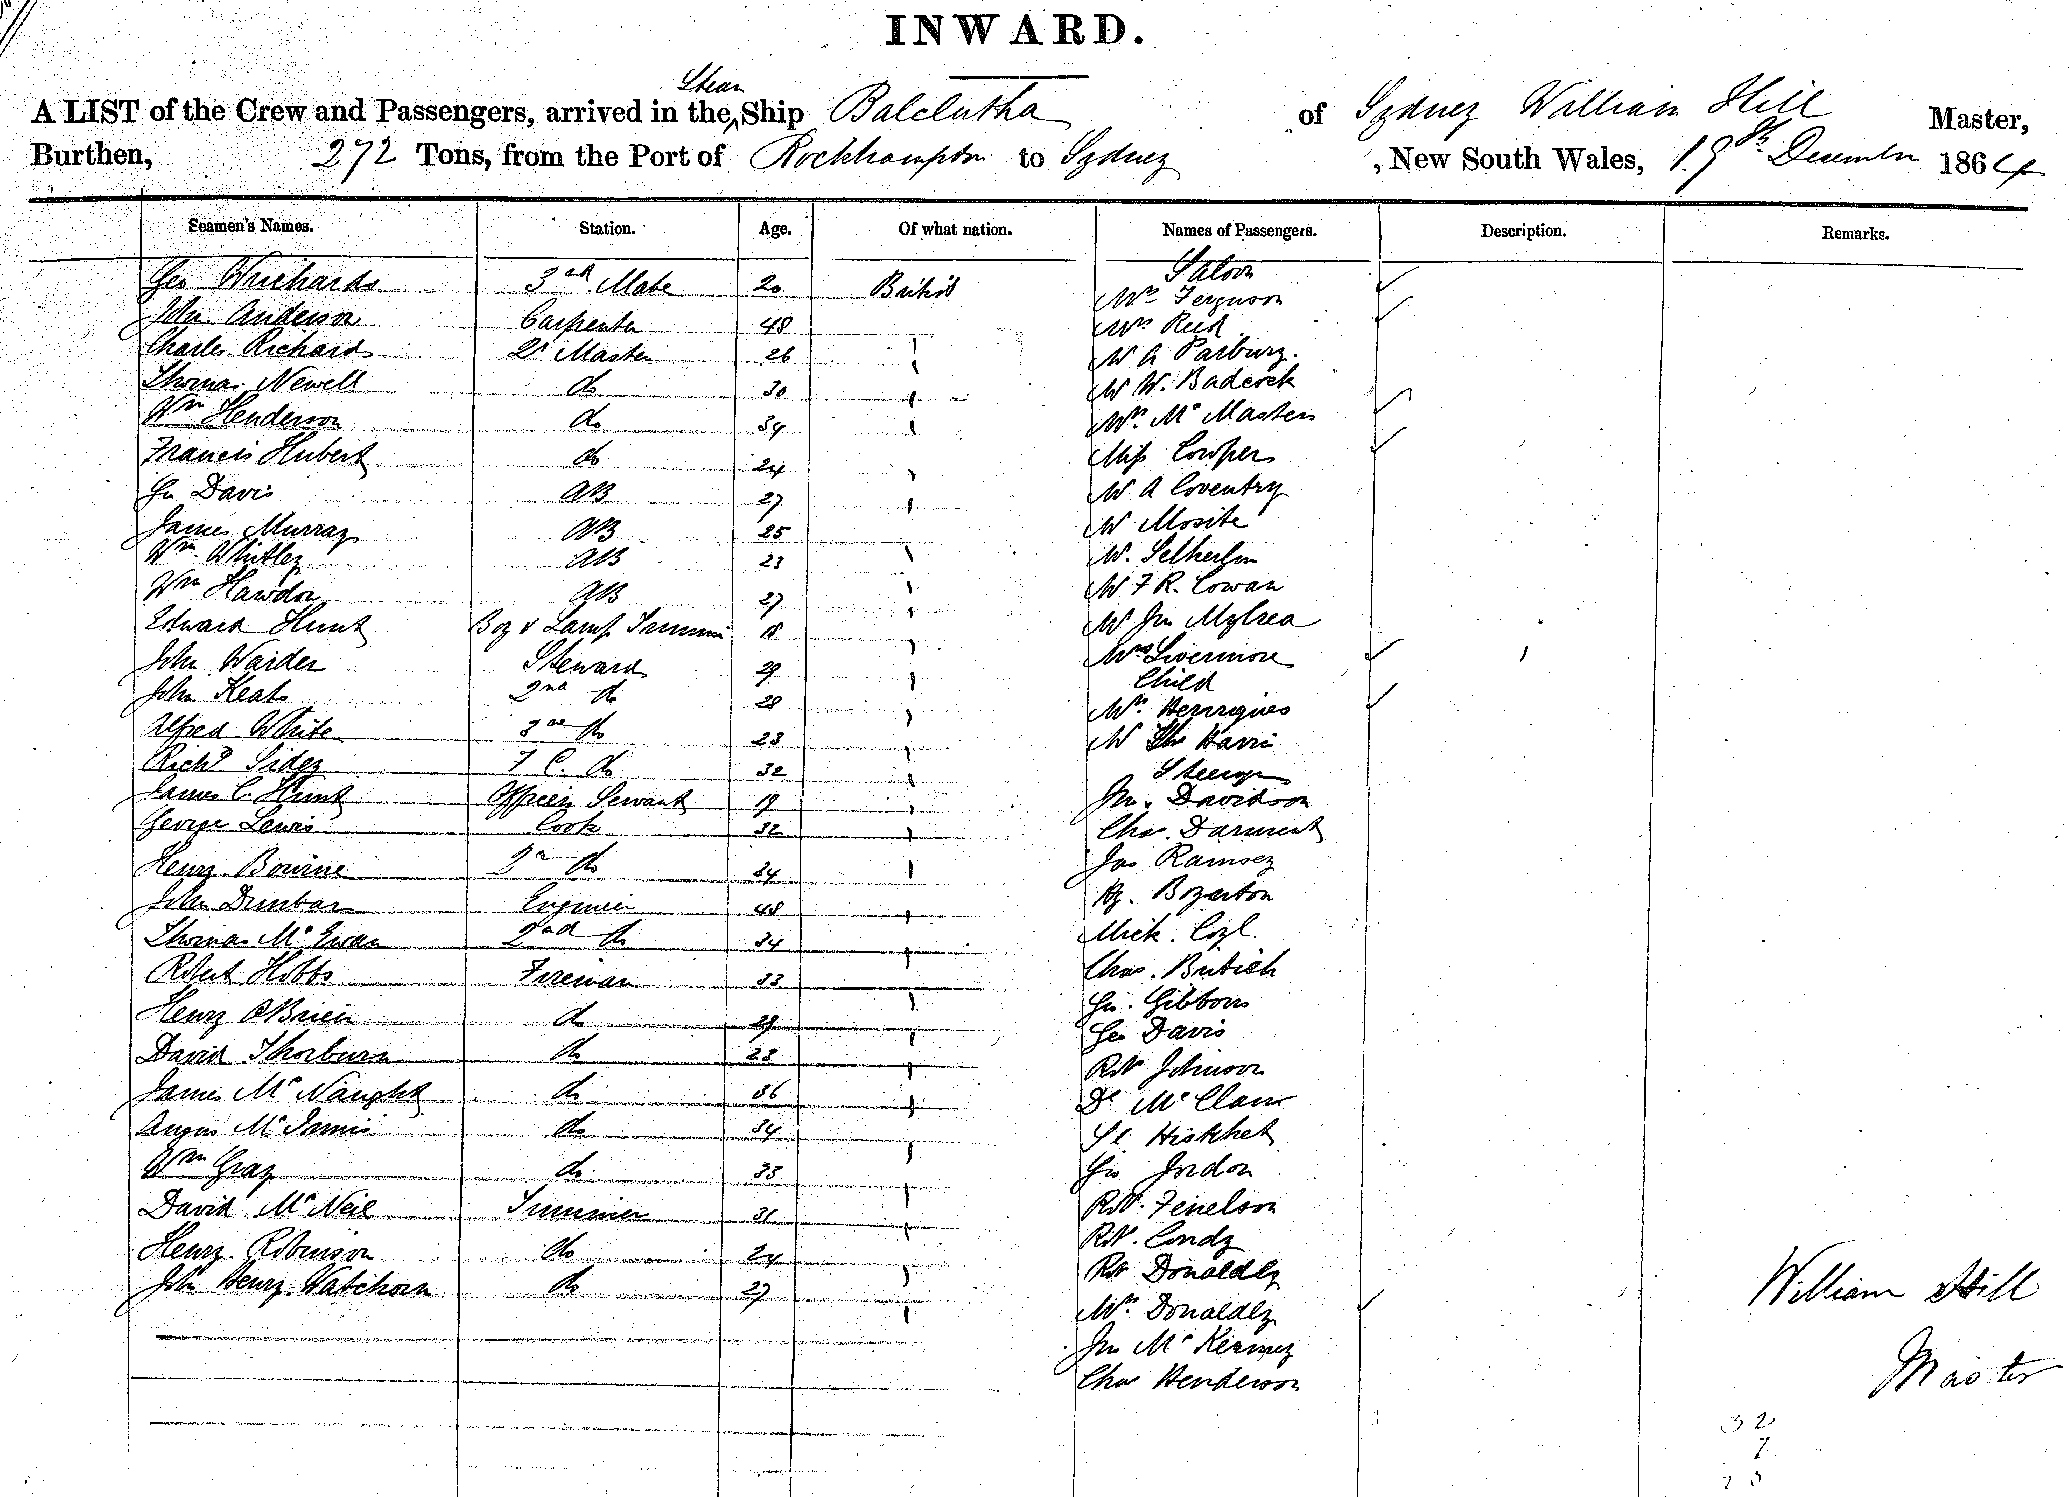 INWARD.
A LIST of the Crew and Passengers, arrived in the Steam Ship Balclutha of Sydney William Hill Master,
Burthen, 272 Tons, from the Port of Rockhampton to Sydney, New South Wales, 19th December 1864
Seamen's Names. Station. Age. Of what nation. Names of Passengers. Description. Remarks.
Saloon
Geo Wrichards 3rd Mate 20 British Mrs Ferguson
John Anderson Carpenter 48 Mrs Reid
Charles Richards Qr Master 26 Mr A Parbury.
Thomas Newell do 30 Mr W. Badcock
Wm Henderson do 34 Mrs McMasters
Francis Hubert do 24 Miss Cowper
Geo Davis AB 27 Mr A Coventry
James Murray AB 25 Mr Mosite
Wm Whitley AB 23 Mr.
Wm Hawdon AB 27 Mr F R. Cowan
Edward Hunt Boy & Lamp Trimmer 18 Mr Jn Mylrea
John Warder Steward 29 Mrs Livermore
Child
John Keats 2nd do 28 Mrs Henriques
Alfred White 3rd do 23 Mr Thos Harris
Richd Sidey F C. do 32 Steerage
James C Hunt Officers Servant 19 Jn. Davidson
George Lewis Cook 32 Chas. Darment
Henry Bourne 2n do 24 Jas Ramsey
John Dunbar Engineer 48 Boyerton
Thomas McEwan 2nd do 34 Mick. Coyl.
Robert Hobbs Fireman 33 Chas.
Henry OBrien do 29 Geo. Gibbons
David Thorburn do 28 Geo Davis
James McNaught do 36 Robt Johnson
Angus McInnis do 34 Dd McClain
Wm Gray do 33 Hiskhet
David McNeil Trimmer 31 Geo Jordon
Henry Robinson do 24 Robt. Fenelson
John Henry Watchorn do 27 Robt. Condy
Robt Donaldly
Mrs Donaldly
Jn McKenney
Chas Henderson
William Hill
Master
32
7